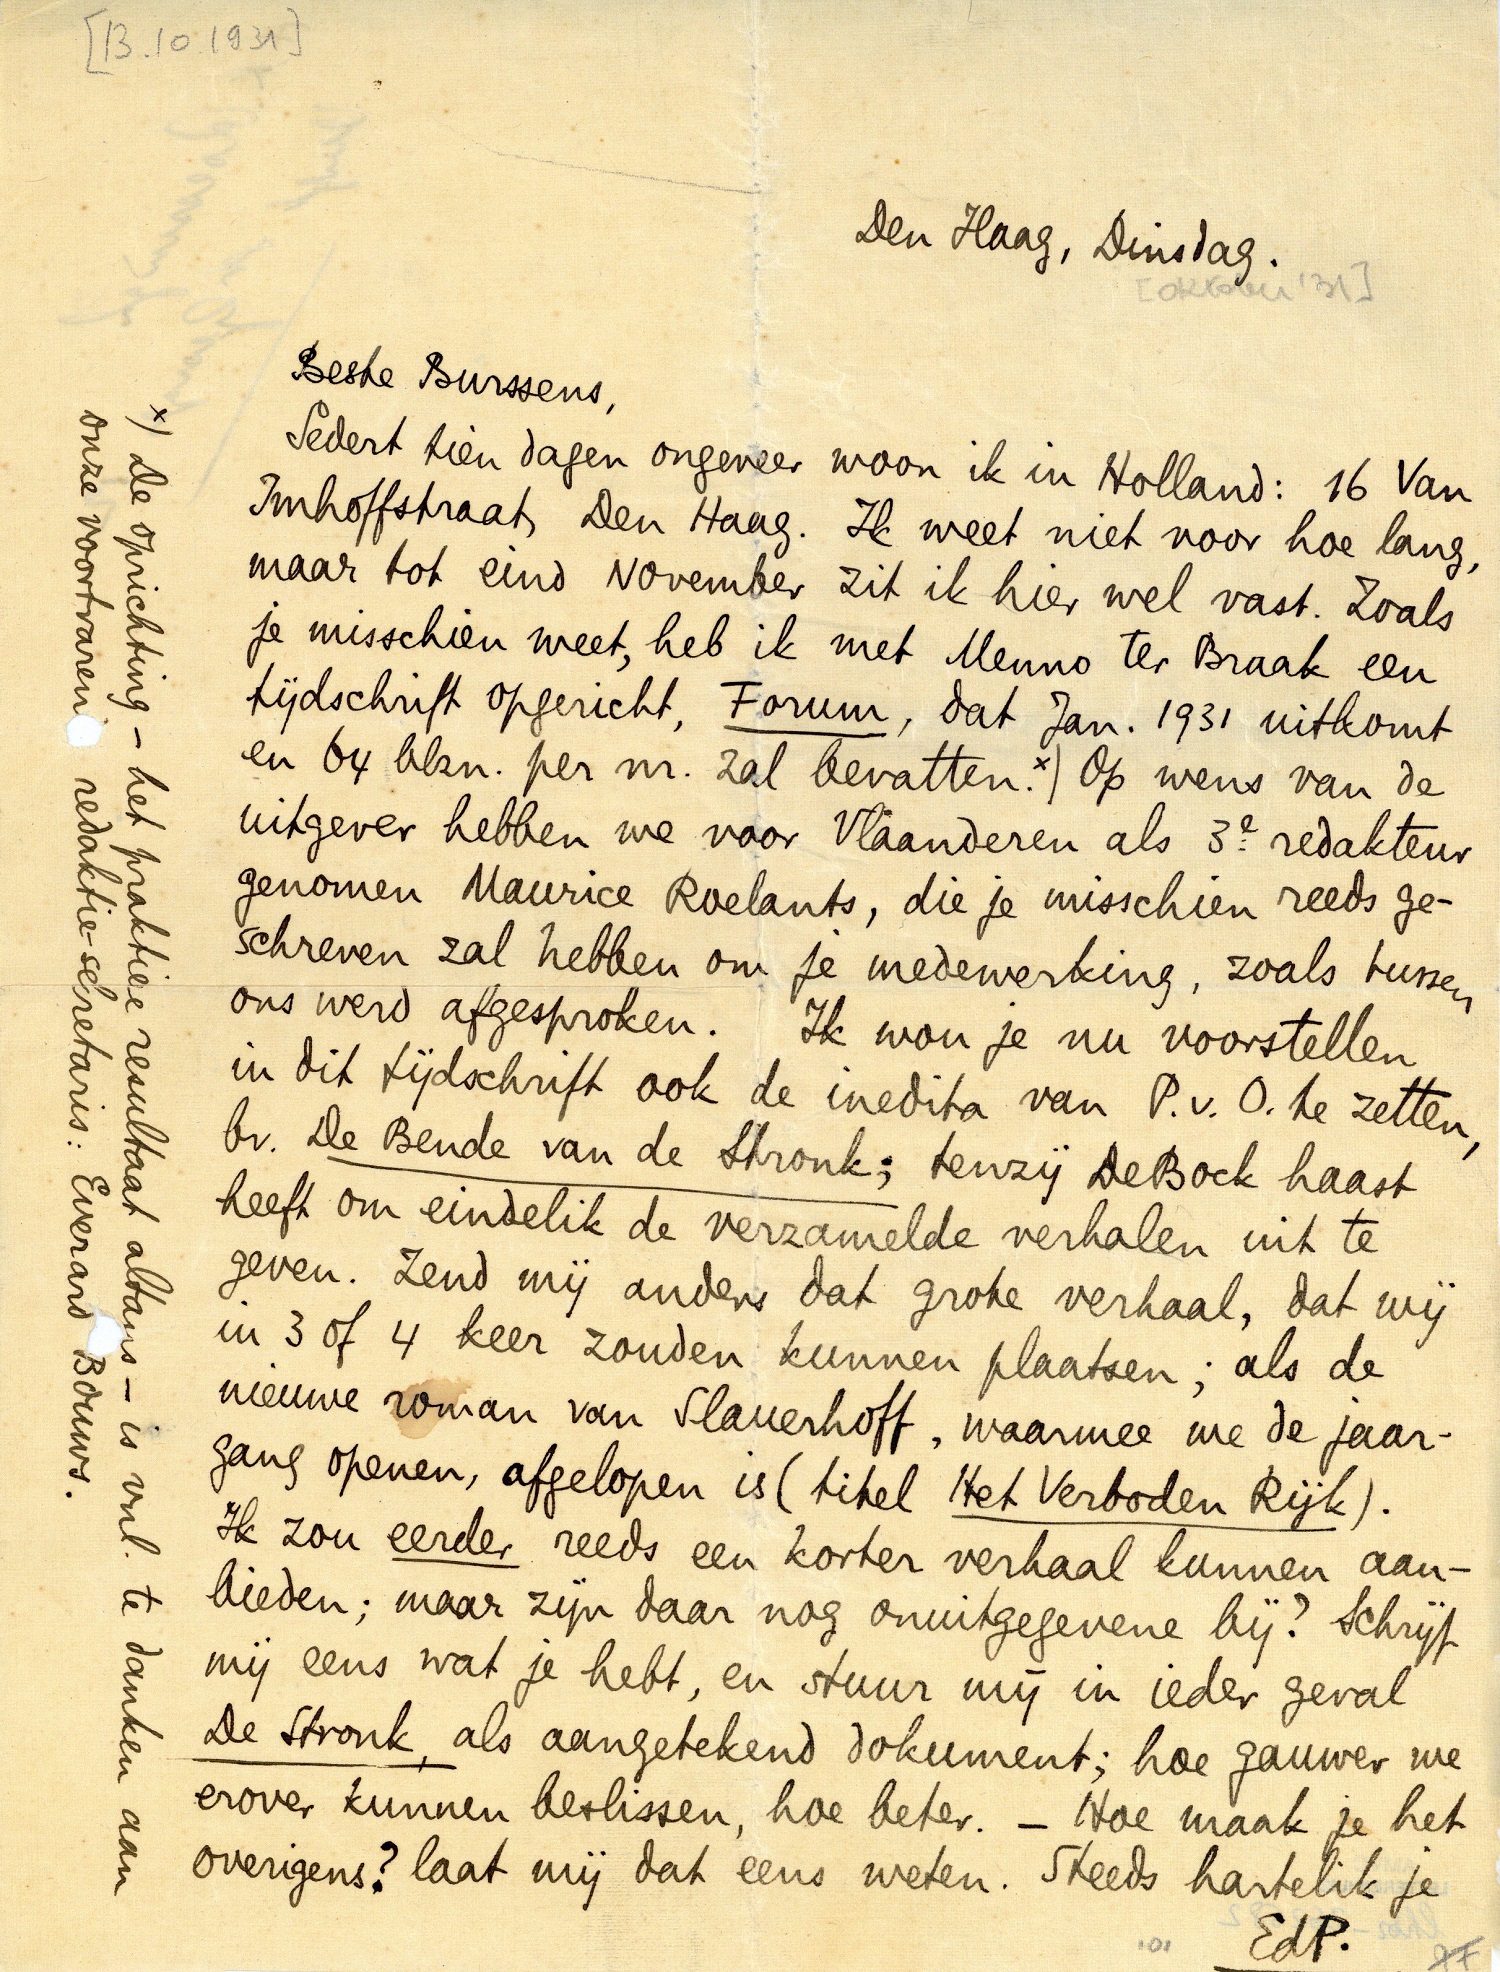 [13.10.1931]
Den Haag, Dinsdag.
[oktober '31]
Beste Burssens,
Sedert tien dagen ongeveer woon ik in Holland: 16 Van
Imhoffstraat, Den Haag. Ik weet niet voor hoe lang,
maar tot eind November zit ik hier wel vast. Zoals
je misschien weet, heb ik met Menno ter Braak een
tijdschrift opgericht, Forum, dat Jan. 1931 uitkomt
en 64 blzn. per nr. zal bevatten.x) Op wens van de
uitgever hebben we voor Vlaanderen als 3e redakteur
genomen Maurice Roelants, die je misschien reeds ge-
schreven zal hebben om je medewerking, zoals tussen
ons werd afgesproken. Ik wou je nu voorstellen
in dit tijdschrift ook de inedita van P.v.O. te zetten,
bv. De Bende van de Stronk; tenzij De Bock haast
heeft om eindelik de verzamelde verhalen uit te
geven. Zend mij anders dat grote verhaal, dat wij
in 3 of 4 keer zouden kunnen plaatsen; als de
nieuwe roman van Slauerhoff, waarmee we de jaar-
gang openen, afgelopen is (titel Het Verboden Rijk).
Ik zou eerder reeds een korter verhaal kunnen aan-
bieden; maar zijn daar nog onuitgegevene bij? Schrijf
mij eens wat je hebt, en stuur mij in ieder geval
De Stronk, als aangetekend dokument; hoe gauwer we
erover kunnen beslissen, hoe beter. – Hoe maak je het
overigens? laat mij dat eens weten. Steeds hartelik je
EdP.
x) De oprichting – het praktiese resultaat altans – is vnl. te danken aan
onze voortvarende redaktie-secretaris: Everard Bouws.